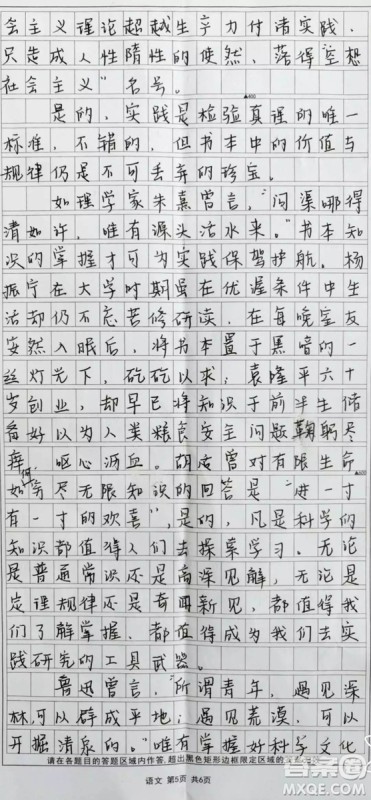 会主义理论超越生产力付诸实践,
只是成人性隋性的使然,落得空想
社会主义”名号。
是的,实践是检验真理的唯一
标准,不错的,但书本中的价值与
规律仍是不可丢弃的珍宝。
如理学家朱熹曾言,“问渠哪得
清如许,唯有源头活水来。”书本知
识的掌握才可为实践保驾护航。杨
振宁在大学时期虽在优渥条件中生
活却仍不忘苦修研读,在每晚室友
安然入眠后,将书本置于黑暗的一
丝灯光下,矻矻以求;袁隆平六十
岁创业,却早已将知识于前半生储
备好以为人类粮食安全问题鞠躬尽
瘁 呕心沥血。胡适曾对有限生命
如何穷尽无限知识的回答是“进一寸
有一寸的欢喜”,是的,凡是科学的
知识都值得人们去探索学习。无论
是普通常识还是高深见解,无论是
定理规律还是奇闻新见,都值得我
们了解掌握,都值得成为我们去实
践研究的工具武器。
鲁迅曾言,“所谓青年,遇见深
林,可以辟成平地;遇见荒漠,可以
开掘清泉的。”唯有掌握好科学文化
请在各题目的答题区域内作答,超出黑色矩形边框限定区域的
语文 第5页 共6页